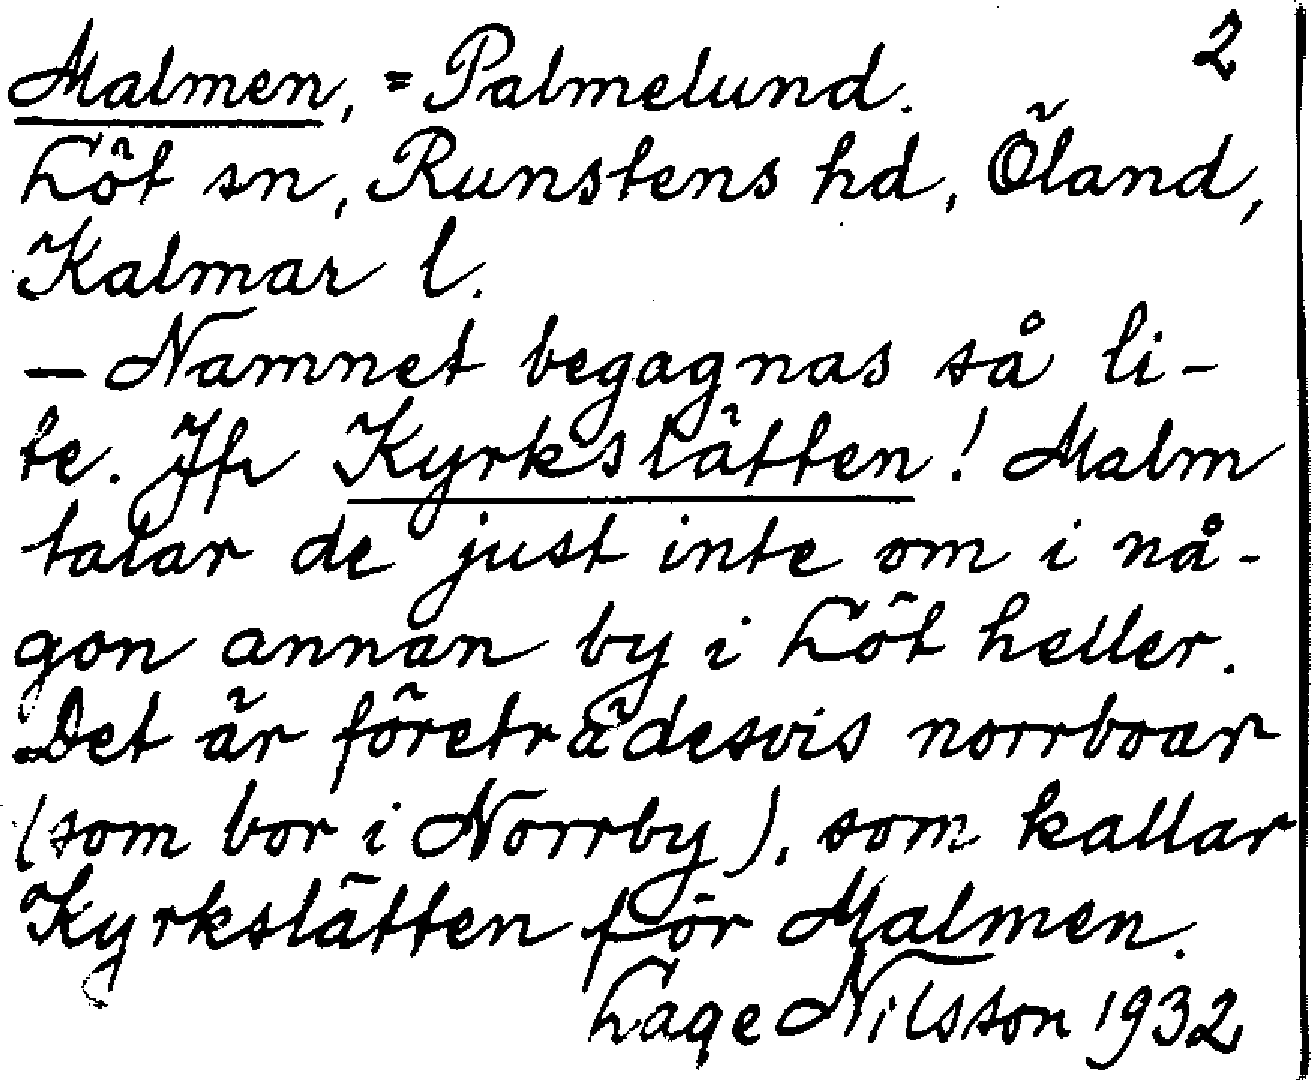 2
Malmen, = Palmelund.
Löt sn, Runstens hd, Öland,
Kalmar l.
— Namnet begagnas så li-
te. Jfr Kyrkslätten! Malm
talar de just inte om i nå-
gon annan by i Löt heller.
Det är företrädesvis norrboar
(som bor i Norrby), som kallar
Kyrkslätten för Malmen.
Lage Nilsson 1932